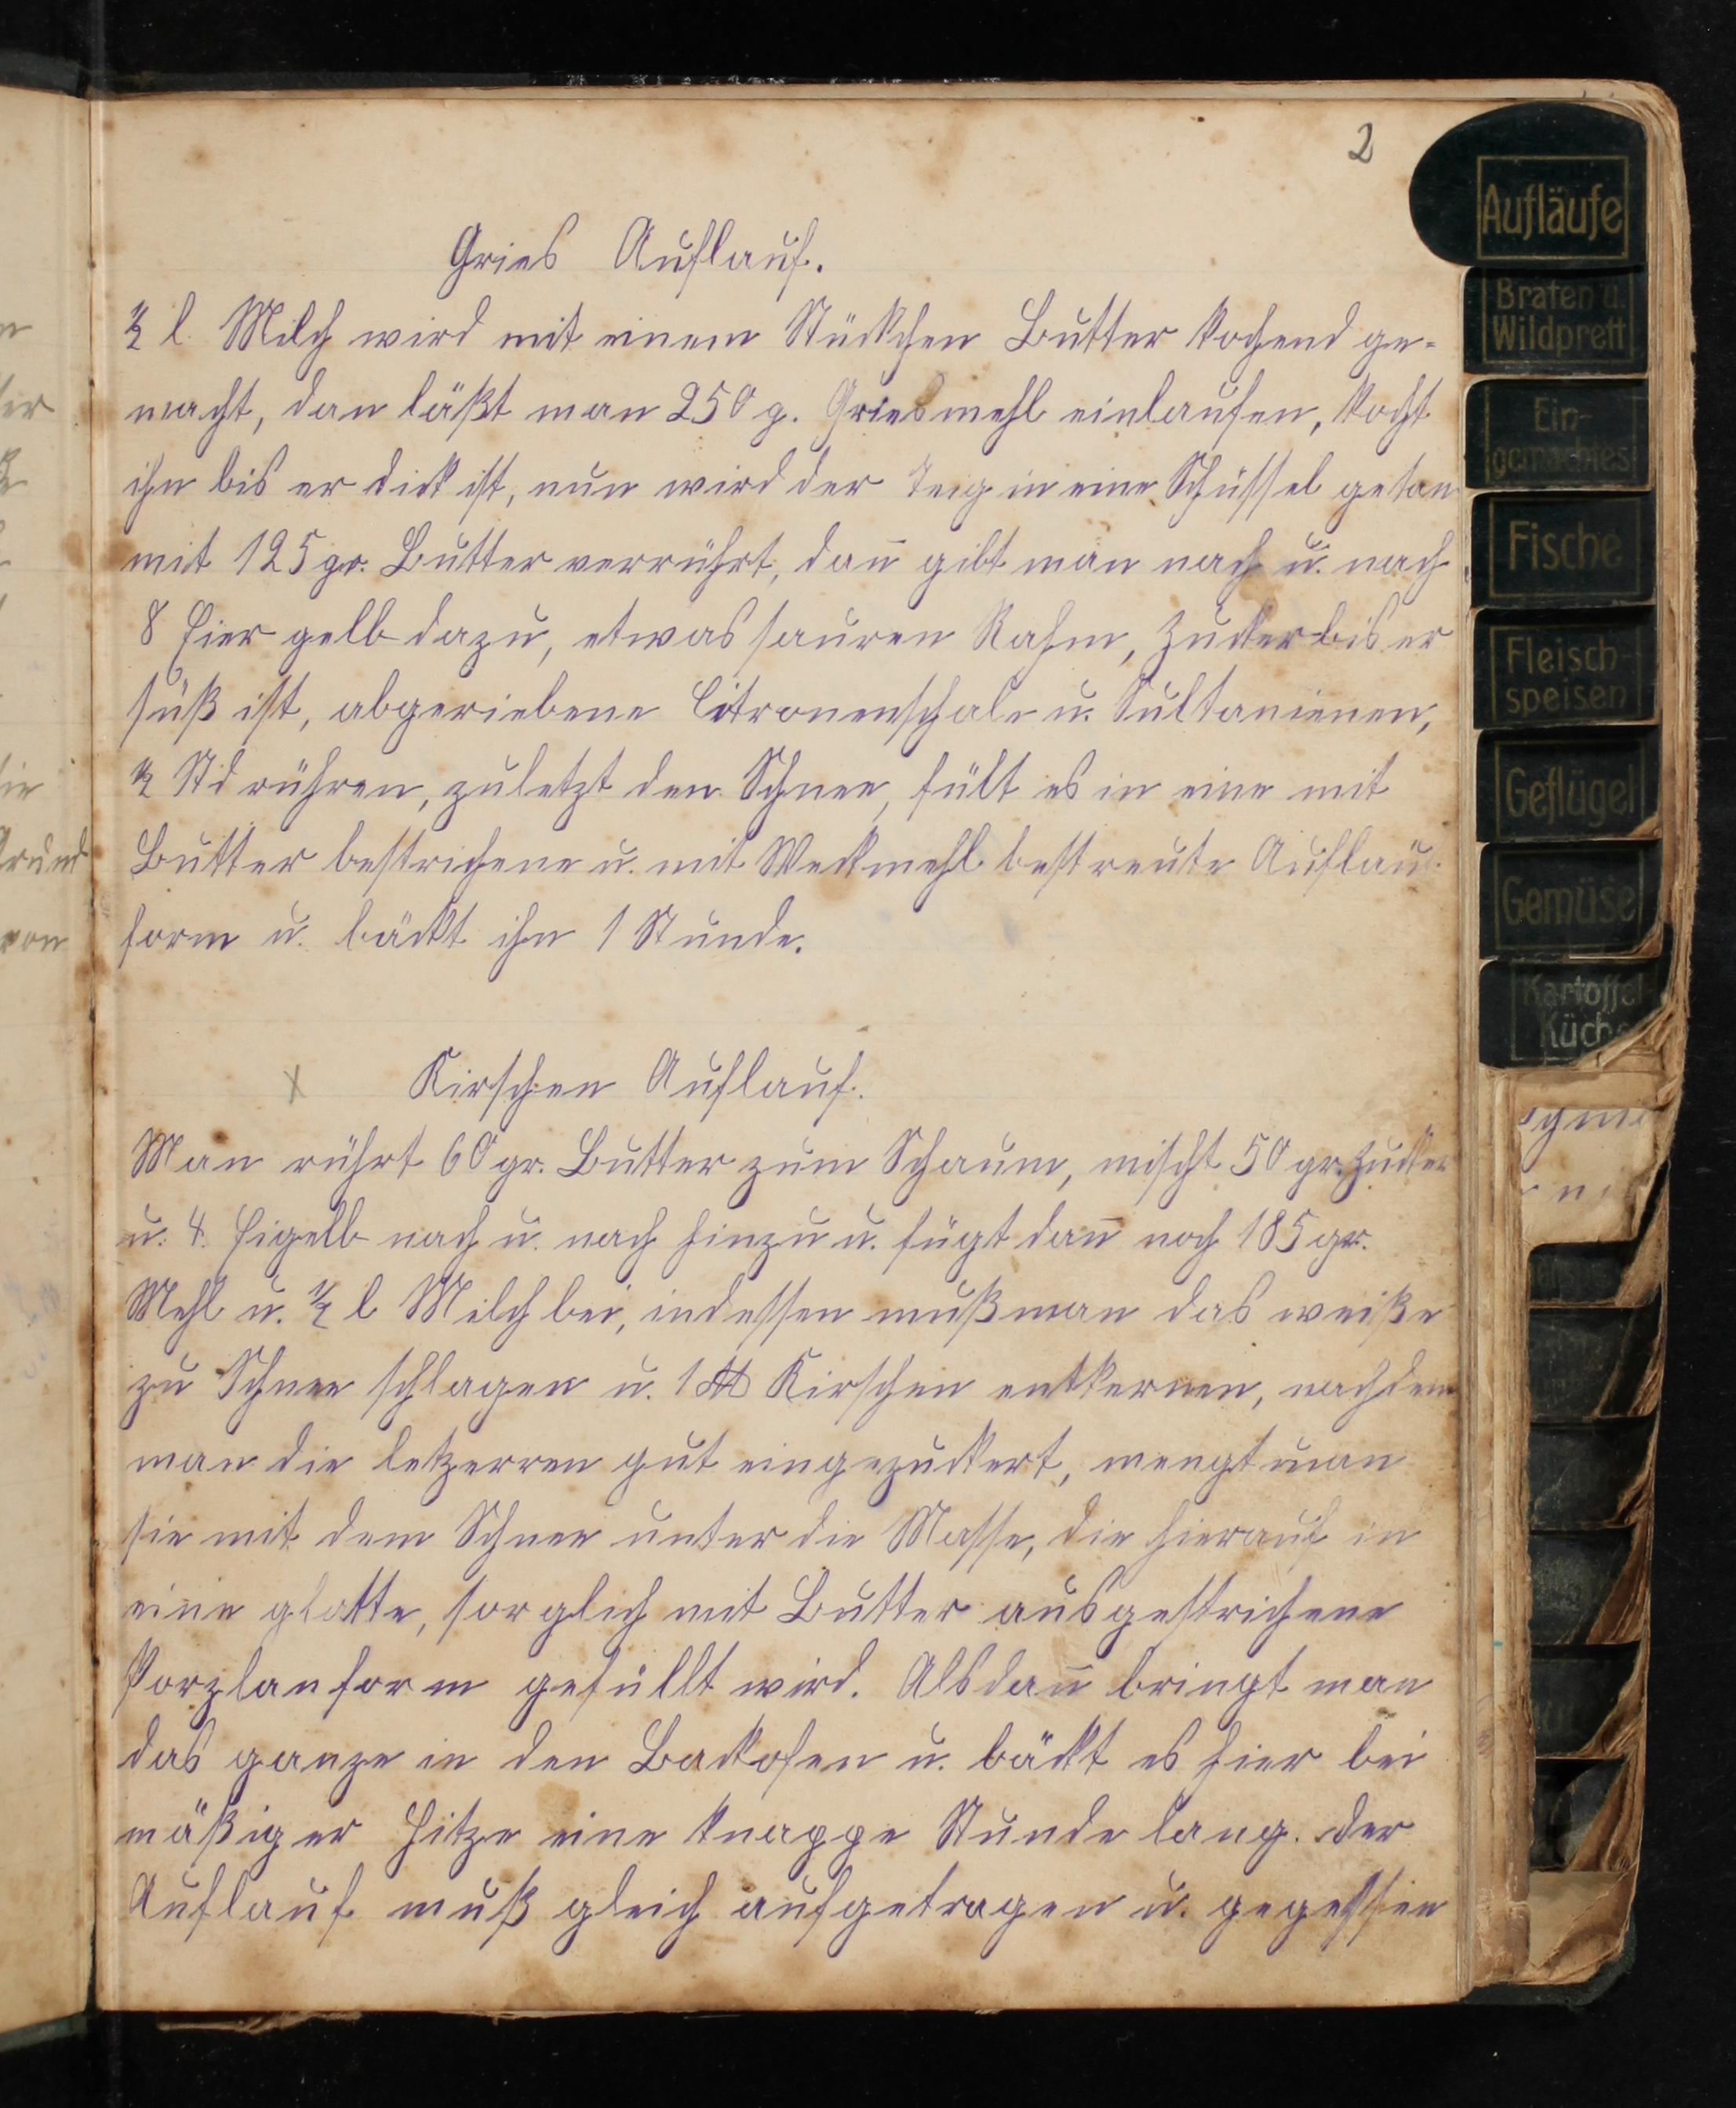 2
Gries Auflauf.
½ l. Milch wird mit einem Stückchen Butter kochend ge-
macht, dan läßt man 250 g. Griesmehl einlaufen, kocht
ihn bis er dick ist, nun wird der Teig in eine Schüssel getan
mit 125 gr. Butter verrührt, dan̄ gibt man nach u. nach
8 Eier gelb dazu, etwas sauren Rahm, Zucker bis er
süß ist, abgeriebene Citronenschale u. Sultanienen,
½ Std rühren, zuletzt den Schnee, fült es in eine mit
Butter bestrichene u. mit Weckmehl bestreute Auflauf
form u. bäckt ihn 1 Stunde.
x Kirschen Auflauf.
Man rührt 60 gr. Butter zum Schaum, mischt 50 gr. Zucker
u. 4. Eigelb nach u. nach hinzu u. fügt dan̄ noch 185 gr.
Mehl u. ½ l Milch bei, indessen muß man das weiße
zu Schnee schlagen u. 1 ℔ Kirschen entkernen, nachdem
man die letzerren gut eingezuckert, mengt man
sie mit dem Schnee unter die Masse, die hierauf in
eine glatte, sorglich mit Butter ausgestrichene
Porzlanform gefüllt wird. Alsdan̄ bringt man
das ganze in den Backofen u. bäckt es hier bei
mäßiger Hitze eine knappe Stunde lang. der
Auflauf muß gleich aufgetragen u. gegessen
Aufläufe
Braten u.
Wildprett
Ein-
gemachtes
Fische
Fleisch-
speisen
Geflügel
Gemüse
Kartoffel
Küche
er
ie
Grund
von